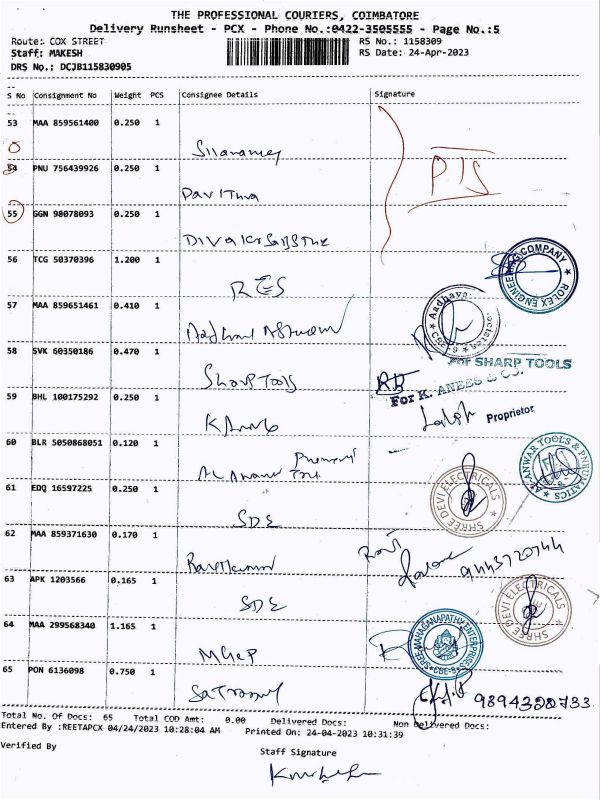 THE PROFESSIONAL COURIERS, COIMBATORE
Delivery Runsheet - PCX - Phone No.:0422-3505555 - Page No.:5
Route: COX STREET RS No.: 1158309
Staff: MAKESH RS Date: 24-Apr-2023
DRS No.: DCJB115830905
S No Consignment No Weight PCS Consignee Details Signature
53 MAA 859561400 0.250 1
54 PNU 756439926 0.250 1
Pavithra
PTS
55 GGN 98078093 0.250 1
56 TCG 50370396 1.200 1
RES
ROLEX ENGINEERING COMPANY
57 MAA 859651461 0.410 1
Aadhava
CBE-6
58 SVK 60350186 0.470 1
Sharp Tools
For SHARP TOOLS
59 BHL 100175292 0.250 1
For K. ANEES & CO.
Proprietor
60 BLR 5050868051 0.120 1
AL-ANWAR TOOLS & PNEUMATICS
61 EDQ 16597225 0.250 1
SDE
SHREE DEVI ELECTRICALS
62 MAA 859371630 0.170 1
Ravikumar
Ravi
63 APK 1203566 0.165 1
SDE
SHREE DEVI ELECTRICALS
64 MAA 299568340 1.165 1
SHREE MAHAGANAPATHY ENTERPRISES
65 PON 6136098 0.750 1
9894322733
Total No. Of Docs: 65 Total COD Amt: 0.00 Delivered Docs: Non Delivered Docs:
Entered By :REETAPCX 04/24/2023 10:28:04 AM Printed On: 24-04-2023 10:31:39
Verified By Staff Signature